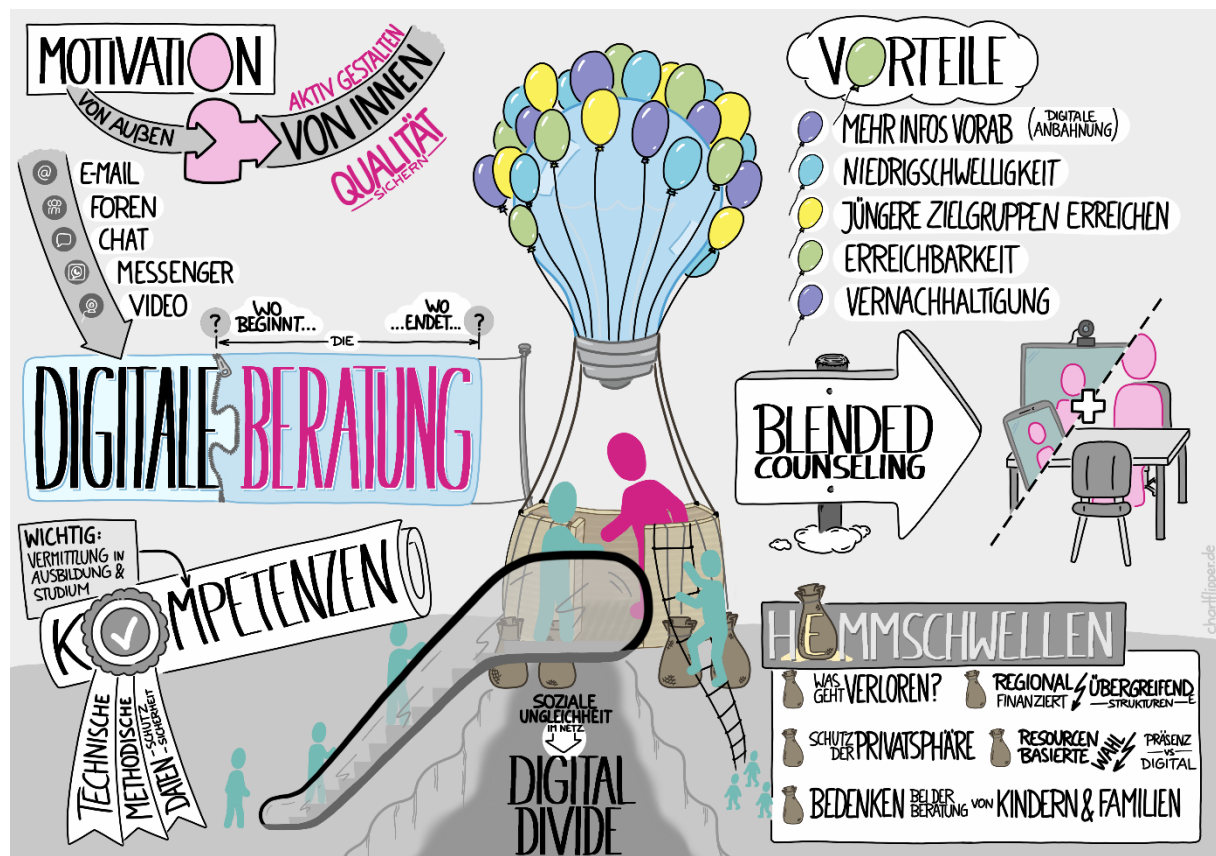 MOTIVATION
VON AUßEN
AKTIV GESTALTEN
VON INNEN
QUALITÄT
SICHERN
@ E-MAIL
FOREN
CHAT
MESSENGER
VIDEO
? WO
BEGINNT...
WO
...ENDET... ?
DIE
DIGITALE BERATUNG
WICHTIG:
VERMITTLUNG IN
AUSBILDUNG &
STUDIUM
KOMPETENZEN
TECHNISCHE
METHODISCHE
DATEN-SCHUTZ
-SICHERHEIT
SOZIALE
UNGLEICHHEIT
IM NETZ
DIGITAL
DIVIDE
VORTEILE
MEHR INFOS VORAB (DIGITALE
ANBAHNUNG)
NIEDRIGSCHWELLIGKEIT
JÜNGERE ZIELGRUPPEN ERREICHEN
ERREICHBARKEIT
VERNACHHALTIGUNG
BLENDED
COUNSELING
chartflipper.de
HEMMSCHWELLEN
WAS
GEHT VERLOREN?
REGIONAL
FINANZIERT
ÜBERGREIFENDE
STRUKTUREN
SCHUTZ
DER PRIVATSPHÄRE
RESOURCEN
BASIERTE WAHL
PRÄSENZ
VS
DIGITAL
BEDENKEN BEI DER
BERATUNG VON KINDERN & FAMILIEN